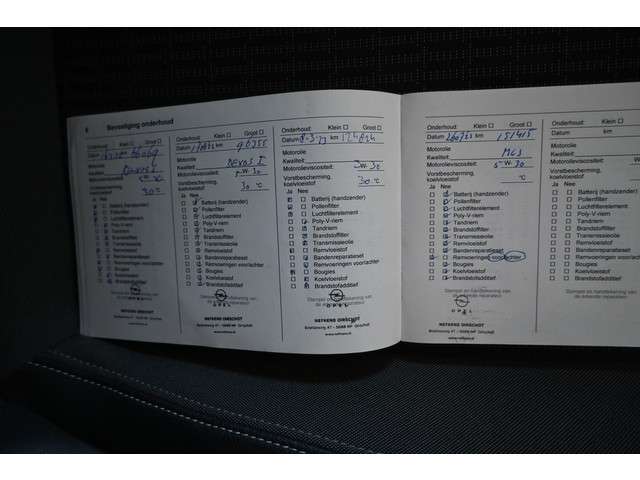 6 Bevestiging onderhoud
Onderhoud: Klein Groot
Datum km
Motorolie
Kwaliteit
Motorolieviscositeit
Vorstbescherming,
koelvloeistof
Ja Nee
Batterij (handzender)
Pollenfilter
Luchtfilterelement
Poly-V-riem
Tandriem
Brandstoffilter
Transmissieolie
Remvloeistof
Bandenreparatieset
Remvoeringen voor/achter
Bougies
Koelvloeistof
Brandstofadditief
OPEL
Onderhoud: Klein Groot
Datum km 90755
Motorolie
Kwaliteit Dexos 2
Motorolieviscositeit W-30
Vorstbescherming,
koelvloeistof 30 °C
Ja Nee
Batterij (handzender)
Pollenfilter
Luchtfilterelement
Poly-V-riem
Tandriem
Brandstoffilter
Transmissieolie
Remvloeistof
Bandenreparatieset
Remvoeringen voor/achter
Bougies
Koelvloeistof
Brandstofadditief
Stempel en handtekening van
de erkende reparateur
OPEL
NEFKENS OIRSCHOT
Onderhoud: Klein Groot
Datum km
Motorolie
Kwaliteit
Motorolieviscositeit W-30
Vorstbescherming,
koelvloeistof 30 °C
Ja Nee
Batterij (handzender)
Pollenfilter
Luchtfilterelement
Poly-V-riem
Tandriem
Brandstoffilter
Transmissieolie
Remvloeistof
Bandenreparatieset
Remvoeringen voor/achter
Bougies
Koelvloeistof
Brandstofadditief
OPEL
NEFKENS OIRSCHOT
Onderhoud: Klein Groot
Datum km 151415
Motorolie
Kwaliteit
Motorolieviscositeit 5-W-30
Vorstbescherming,
koelvloeistof °C
Ja Nee
Batterij (handzender)
Pollenfilter
Luchtfilterelement
Poly-V-riem
Tandriem
Brandstoffilter
Transmissieolie
Remvloeistof
Bandenreparatieset
Remvoeringen voor/achter
Bougies
Koelvloeistof
Brandstofadditief
Stempel en handtekening van
de erkende reparateur
OPEL
NEFKENS OIRSCHOT
Onderhoud: Klein Groot
Datum km
Motorolie
Kwaliteit
Motorolieviscositeit
Vorstbescherming,
koelvloeistof
Ja Nee
Batterij (handzender)
Pollenfilter
Luchtfilterelement
Poly-V-riem
Tandriem
Brandstoffilter
Transmissieolie
Remvloeistof
Bandenreparatieset
Remvoeringen voor/achter
Bougies
Koelvloeistof
Brandstofadditief
Stempel en handtekening van
de erkende reparateur